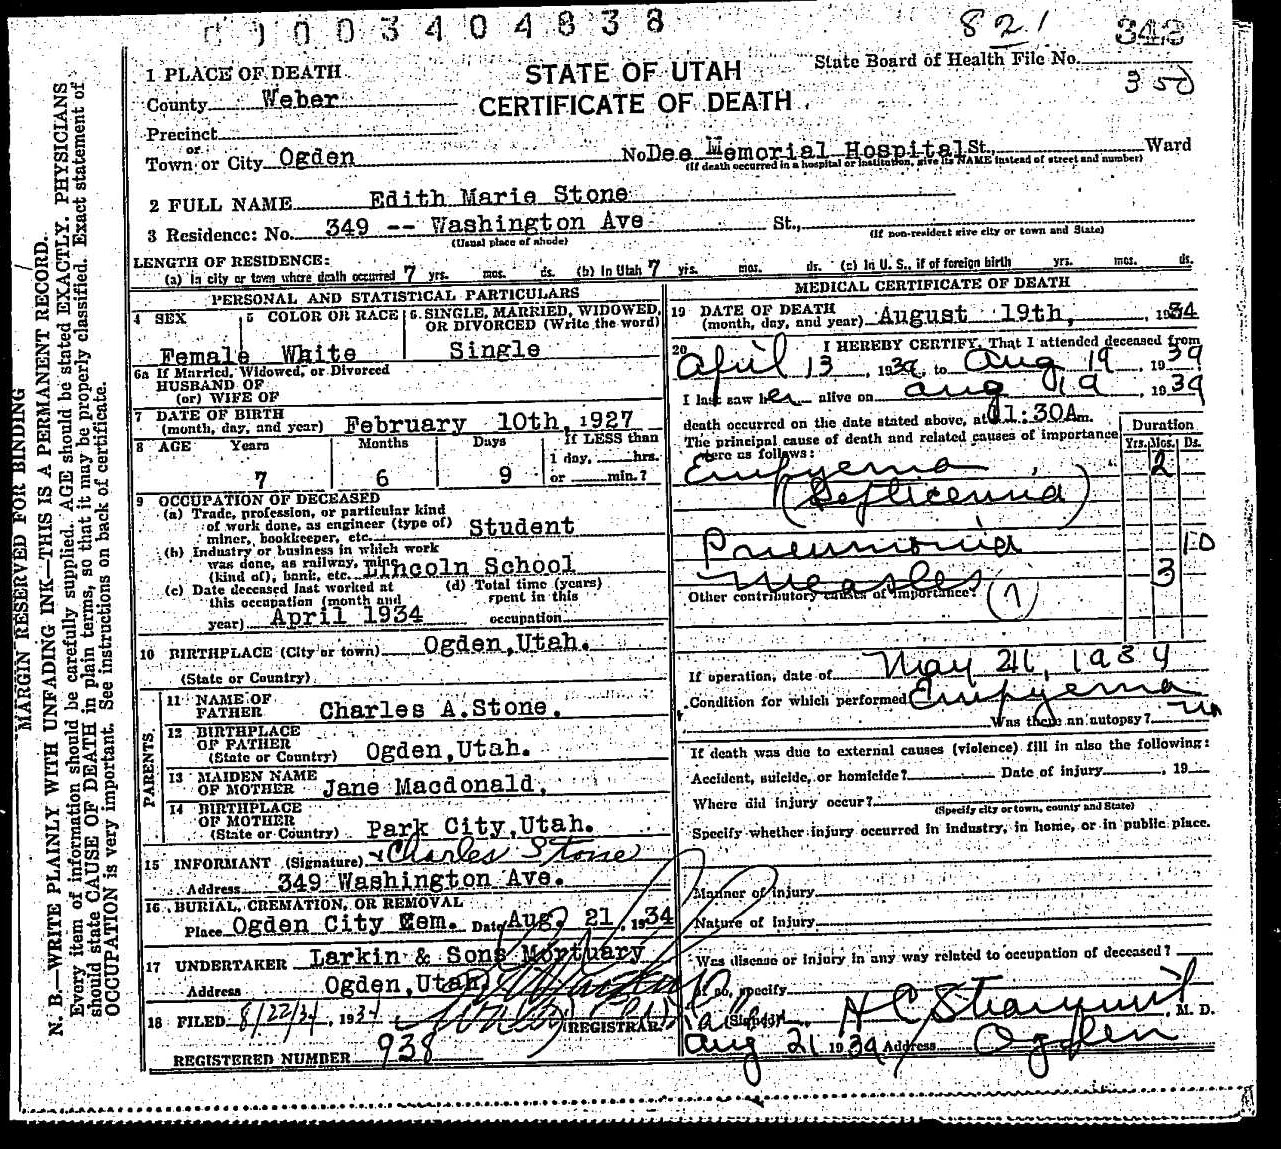 0 0 0 3 4 0 4 8 3 8
821
343
350
STATE OF UTAH
CERTIFICATE OF DEATH
State Board of Health File No.
1 PLACE OF DEATH
County Weber
Precinct
or
Town or City Ogden No Dee Memorial Hospital St., Ward
(If death occurred in a hospital or institution, give its NAME instead of street and number)
2 FULL NAME Edith Marie Stone
3 Residence: No. 349 -- Washington Ave St.,
(Usual place of abode) (If non-resident give city or town and State)
LENGTH OF RESIDENCE:
(a) In city or town where death occurred 7 yrs. mos. ds. (b) In Utah 7 yrs. mos. ds. (c) In U. S., if of foreign birth yrs. mos. ds.
PERSONAL AND STATISTICAL PARTICULARS
4 SEX 5 COLOR OR RACE 6 SINGLE, MARRIED, WIDOWED,
OR DIVORCED (Write the word)
Female White Single
6a If Married, Widowed, or Divorced
HUSBAND OF
(or) WIFE OF
7 DATE OF BIRTH
(month, day, and year) February 10th, 1927
8 AGE Years Months Days If LESS than
1 day, hrs.
7 6 9 or min.?
9 OCCUPATION OF DECEASED
(a) Trade, profession, or particular kind
of work done, as engineer (type of)
miner, bookkeeper, etc. Student
(b) Industry or business in which work
was done, as railway, mine
(kind of), bank, etc. Lincoln School
(c) Date deceased last worked at
this occupation (month and
year) April 1934
(d) Total time (years)
spent in this
occupation
10 BIRTHPLACE (City or town) Ogden,Utah.
(State or Country)
PARENTS
11 NAME OF
FATHER Charles A.Stone.
12 BIRTHPLACE
OF FATHER
(State or Country) Ogden,Utah.
13 MAIDEN NAME
OF MOTHER Jane Macdonald,
14 BIRTHPLACE
OF MOTHER
(State or Country) Park City,Utah.
15 INFORMANT (Signature) x Charles Stone
Address 349 Washington Ave.
16 BURIAL, CREMATION, OR REMOVAL
Place Ogden City Cem. Date Aug. 21, 1934
17 UNDERTAKER Larkin & Sons Mortuary
Address Ogden,Utah.
18 FILED 8/22/34, 1934
(REGISTRAR)
REGISTERED NUMBER 938
MEDICAL CERTIFICATE OF DEATH
19 DATE OF DEATH
(month, day, and year) August 19th, , 1934
20 I HEREBY CERTIFY, That I attended deceased from
April 13, 1934, to Aug 19, 1934
I last saw her alive on Aug 19, 1934
death occurred on the date stated above, at 11:30A m.
The principal cause of death and related causes of importance
were as follows:
Duration
Yrs. Mos. Ds.
Empyema 2
(Septicemia)
Pneumonia 10
Measles 3
Other contributory causes of importance: (7)
If operation, date of May 21, 1934
Condition for which performed Empyema
Was there an autopsy? no
If death was due to external causes (violence) fill in also the following:
Accident, suicide, or homicide? Date of injury , 19
Where did injury occur?
(Specify city or town, county and State)
Specify whether injury occurred in industry, in home, or in public place.
Manner of injury
Nature of injury
Was disease or injury in any way related to occupation of deceased?
If so, specify
(Signed) H C , M. D.
Aug 21 1934 Address Ogden
MARGIN RESERVED FOR BINDING
N. B.—WRITE PLAINLY WITH UNFADING INK—THIS IS A PERMANENT RECORD.
Every item of information should be carefully supplied. AGE should be stated EXACTLY. PHYSICIANS
should state CAUSE OF DEATH in plain terms, so that it may be properly classified. Exact statement of
OCCUPATION is very important. See instructions on back of certificate.